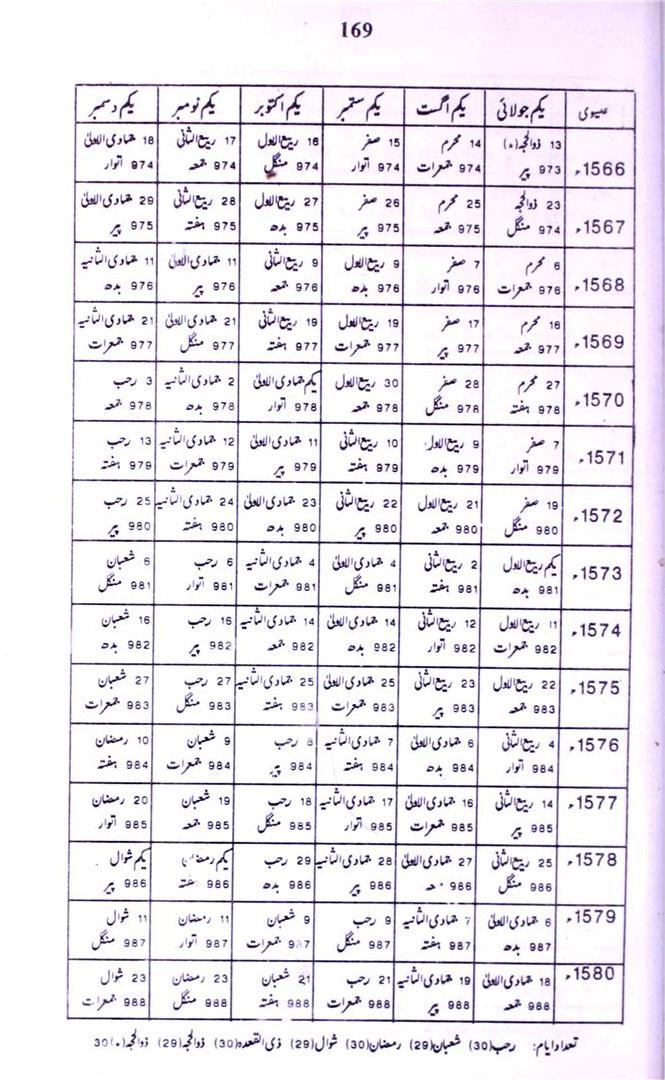 169
عیسوی یکم جولائی یکم اگست یکم ستمبر یکم اکتوبر یکم نومبر یکم دسمبر
1566ء 13 ذوالحجہ(*) 14 محرم 15 صفر 16 ربیع الاول 17 ربیع الثانی 18 جمادی الاولیٰ
973 پیر 974 جمعرات 974 اتوار 974 منگل 974 جمعہ 974 اتوار
1567ء 23 ذوالحجہ 25 محرم 26 صفر 27 ربیع الاول 28 ربیع الثانی 29 جمادی الاولیٰ
974 منگل 975 جمعہ 975 پیر 975 بدھ 975 ہفتہ 975 پیر
1568ء 6 محرم 7 صفر 9 ربیع الاول 9 ربیع الثانی 11 جمادی الاولیٰ 11 جمادی الثانیہ
976 جمعرات 976 اتوار 976 بدھ 976 جمعہ 976 پیر 976 بدھ
1569ء 16 محرم 17 صفر 19 ربیع الاول 19 ربیع الثانی 21 جمادی الاولیٰ 21 جمادی الثانیہ
977 جمعہ 977 پیر 977 جمعرات 977 ہفتہ 977 منگل 977 جمعرات
1570ء 27 محرم 28 صفر 30 ربیع الاول یکم جمادی الاولیٰ 2 جمادی الثانیہ 3 رجب
978 ہفتہ 978 منگل 978 جمعہ 978 اتوار 978 بدھ 978 جمعہ
1571ء 7 صفر 9 ربیع الاول 10 ربیع الثانی 11 جمادی الاولیٰ 12 جمادی الثانیہ 13 رجب
979 اتوار 979 بدھ 979 ہفتہ 979 پیر 979 جمعرات 979 ہفتہ
1572ء 19 صفر 21 ربیع الاول 22 ربیع الثانی 23 جمادی الاولیٰ 24 جمادی الثانیہ 25 رجب
980 منگل 980 جمعہ 980 پیر 980 بدھ 980 ہفتہ 980 پیر
1573ء یکم ربیع الاول 2 ربیع الثانی 4 جمادی الاولیٰ 4 جمادی الثانیہ 6 رجب 6 شعبان
981 بدھ 981 ہفتہ 981 منگل 981 جمعرات 981 اتوار 981 منگل
1574ء 11 ربیع الاول 12 ربیع الثانی 14 جمادی الاولیٰ 14 جمادی الثانیہ 16 رجب 16 شعبان
982 جمعرات 982 اتوار 982 بدھ 982 جمعہ 982 پیر 982 بدھ
1575ء 22 ربیع الاول 23 ربیع الثانی 25 جمادی الاولیٰ 25 جمادی الثانیہ 27 رجب 27 شعبان
983 جمعہ 983 پیر 983 جمعرات 983 ہفتہ 983 منگل 983 جمعرات
1576ء 4 ربیع الثانی 6 جمادی الاولیٰ 7 جمادی الثانیہ 8 رجب 9 شعبان 10 رمضان
984 اتوار 984 بدھ 984 ہفتہ 984 پیر 984 جمعرات 984 ہفتہ
1577ء 14 ربیع الثانی 16 جمادی الاولیٰ 17 جمادی الثانیہ 18 رجب 19 شعبان 20 رمضان
985 پیر 985 جمعرات 985 اتوار 985 منگل 985 جمعہ 985 اتوار
1578ء 25 ربیع الثانی 27 جمادی الاولیٰ 28 جمادی الثانیہ 29 رجب یکم رمضان یکم شوال
986 منگل 986 986 پیر 986 بدھ 986 ہفتہ 986 پیر
1579ء 6 جمادی الاولیٰ 7 جمادی الثانیہ 9 رجب 9 شعبان 11 رمضان 11 شوال
987 بدھ 987 ہفتہ 987 منگل 987 جمعرات 987 اتوار 987 منگل
1580ء 18 جمادی الاولیٰ 19 جمادی الثانیہ 21 رجب 21 شعبان 23 رمضان 23 شوال
988 جمعہ 988 پیر 988 جمعرات 988 ہفتہ 988 منگل 988 جمعرات
تعداد ایام: رجب(30) شعبان(29) رمضان(30) شوال(29) ذی القعدہ(30) ذوالحجہ(29) ذوالحجہ(*)30